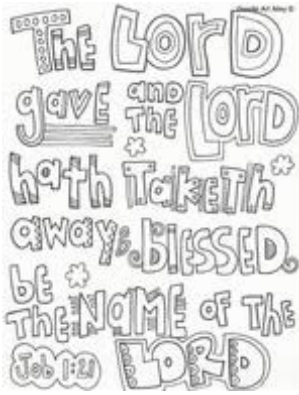 Doodle Art Alley ©
The LORD
gave and the LORD
hath Taketh
away & BLESSED
be the NAME OF The
Job 1:21 LORD